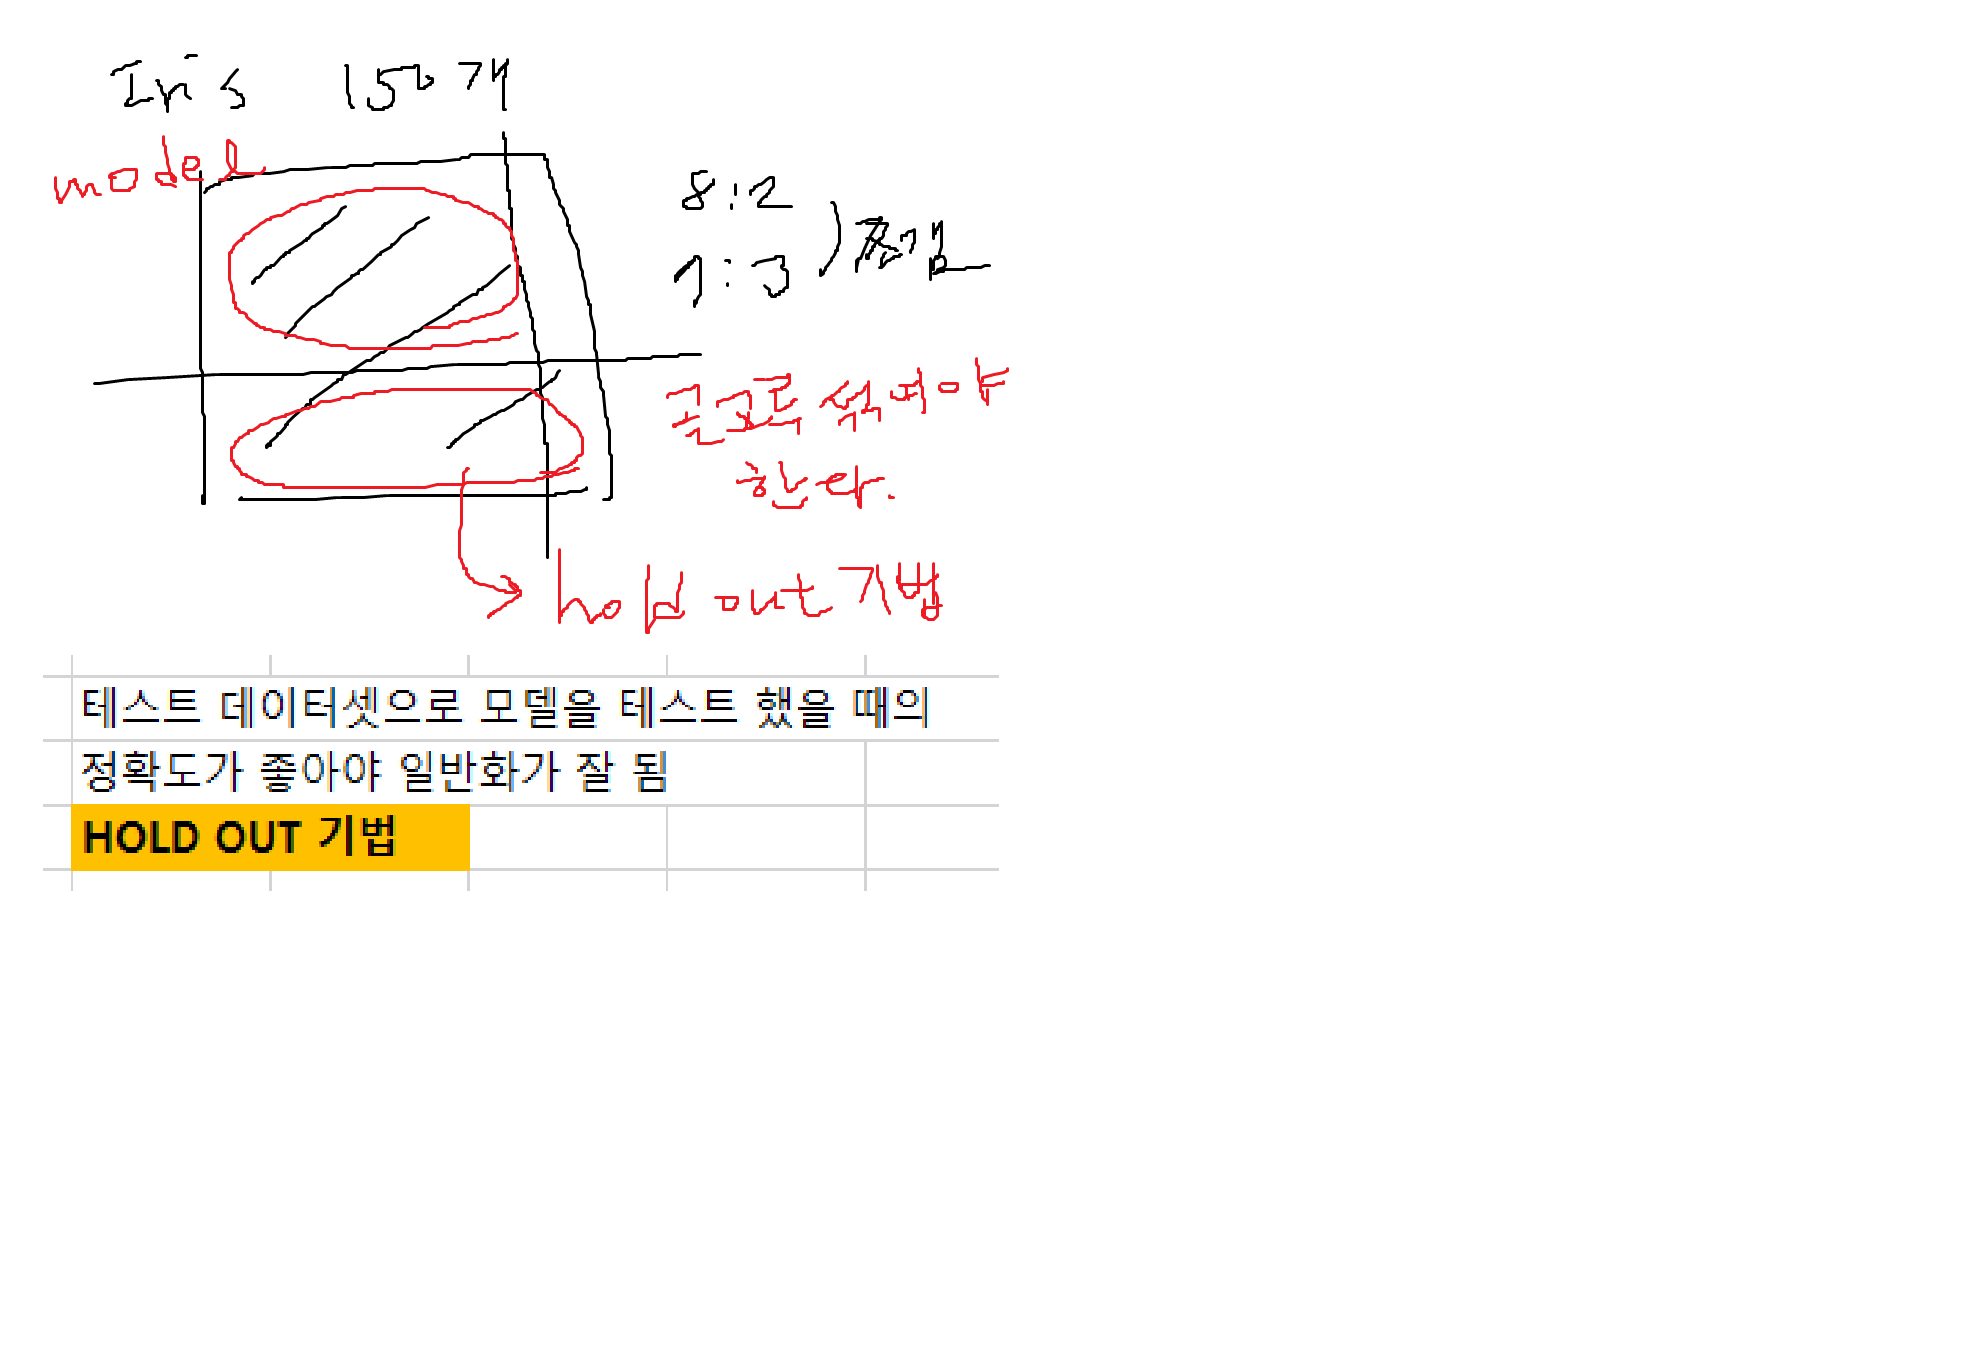 Iris 150개
model
8:2
7:3
골고루 섞여야
한다.
hold out 기법
테스트 데이터셋으로 모델을 테스트 했을 때의
정확도가 좋아야 일반화가 잘 됨
HOLD OUT 기법